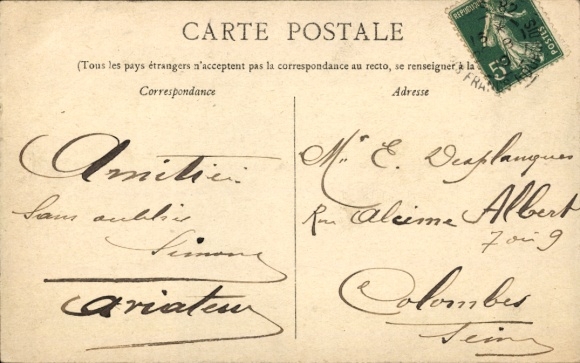 CARTE POSTALE
(Tous les pays étrangers n'acceptent pas la correspondance au recto, se renseigner à la
Correspondance
Adresse
Amitiés
Sans oublier
Simone
Aviateur
Mr E. Desplanques
Rue Alcime Albert
7 ou 9
Colombes
Seine
RÉPUBLIQUE FRANÇAISE
POSTES
5